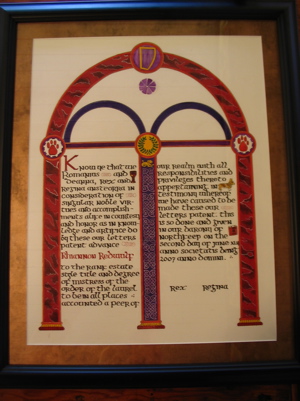 Know ye that we
Romanus and
Deanna, Rex and
Regina Ansteorra in
consideration of
singular noble vir-
tues and accomplish-
ments alike in contests
and honor as in know-
ledge and artifice do
by these our letters
patent advance
Rhiannon Redwulf
to the rank estate
style title and degree
of mistress of the
order of the laurel
to be in all places
accounted a peer of
our realm with all
responsibilities and
privileges thereto
appertaining. In
testimony whereof
we have caused to be
made these our
letters patent. This
is so done and given
in our barony of
Northkeep on the
second day of June XLII
anno societatis being
2007 anno domini.
Rex Regina